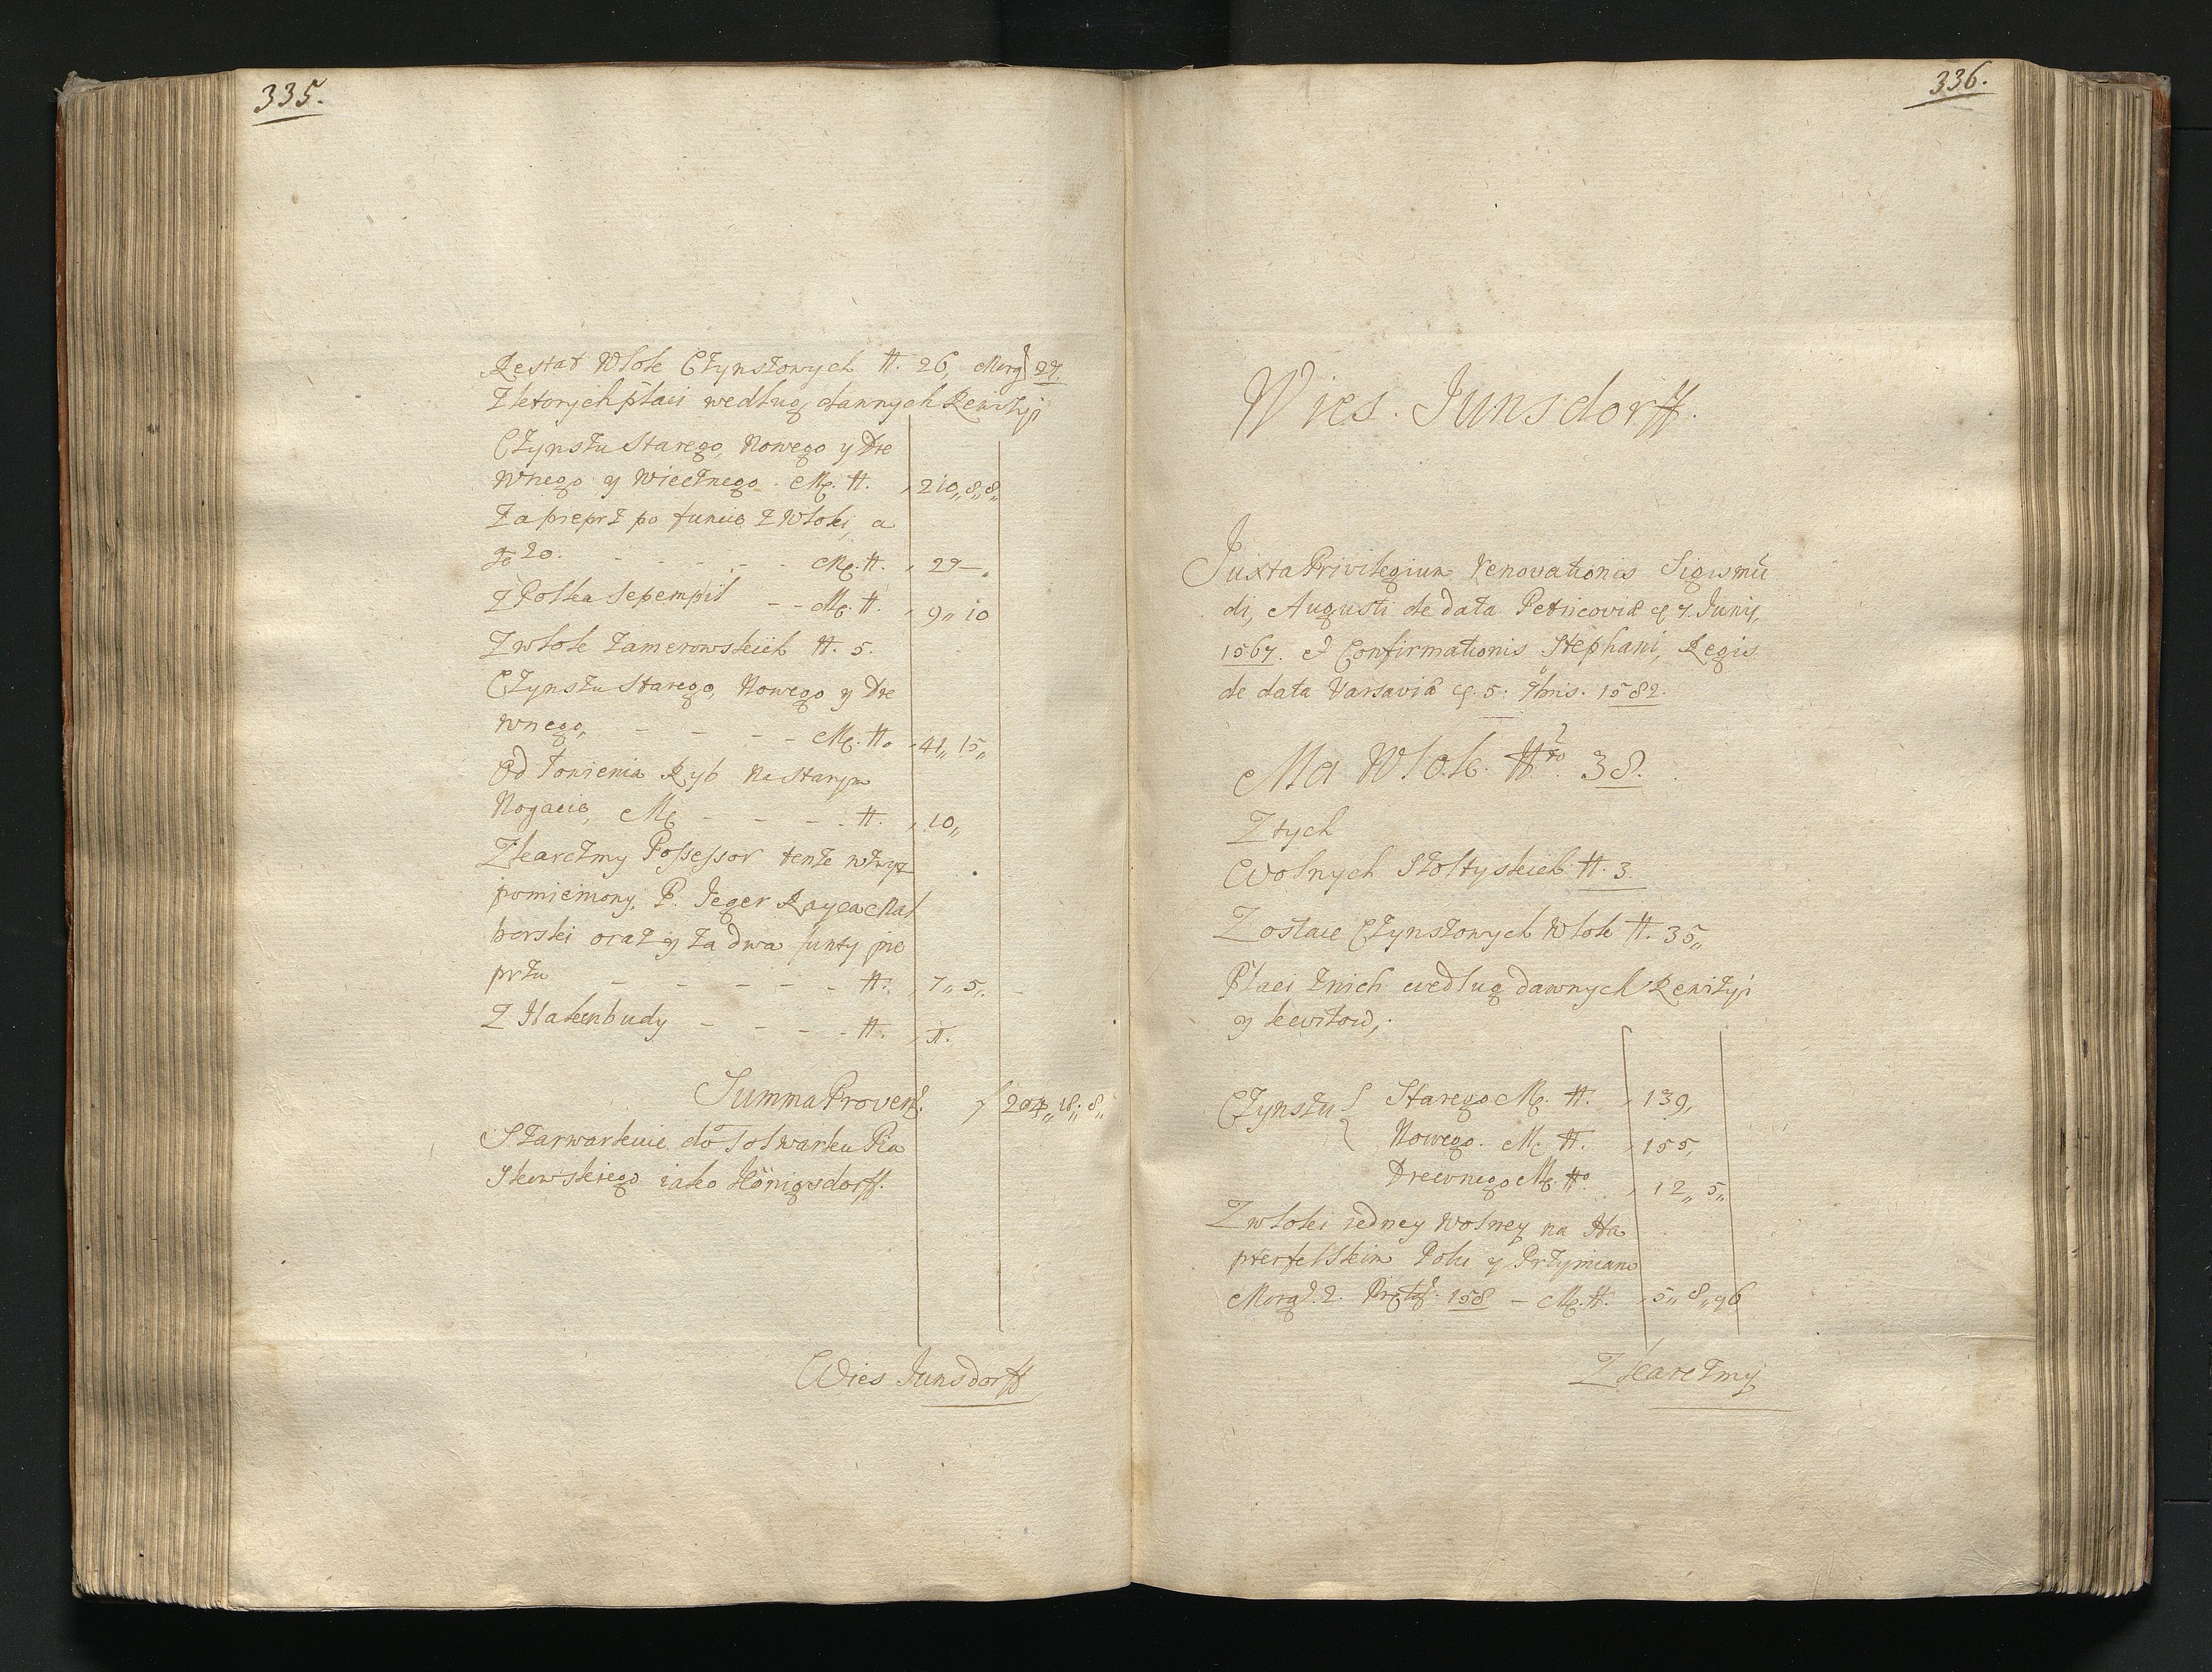 335.
Restat Włok Czynszowych #. 26, Morg 27.
Z ktorych płaci według dawnych Rewizyi
Czynszu Starego, Nowego y Dre
wnego y Wiecznego. M. #. 210„ 8„ 8„
Za pieprz po funcie z Włoki, a
go 20. - - - - M. #. 29 —
Z - - M. #. 9„ 10
Z włok Kamerowskich #. 5.
Czynszu Starego, Nowego y Dre
wnego, - - - - M. #. 41„ 15„
Od łowienia Ryb Na Starym
Nogacie, M. - - - - #. 10„
Z karczmy Possessor tenże wżwyż
pomieniony, P. Jeger Rayca Mal
borski oraz y za dwa funty pie
przu - - - - - #. 7„ 5„
Z Hakenbudy - - - - #.
Summa Proven. 204„ 18„ 8„
Szarwarkuie do Folwarku Pia
skowskiego iako Königsdorff.
Wies Junsdorff
336.
Wies. Junsdorff.
Juxta Privilegium Renovationis Sigismū
di, Augusti de data Petricoviæ 7. Junij,
1567. Et Confirmationis Stephani, Regis
de data Varsaviæ 5. 1582.
Ma Włok. #ro 38.
Z tych
Wolnych Szołtyskich #. 3.
Zostaie Czynszowych Włok #. 35„
Płaci z nich według dawnych Rewizyi
y kwitow,
Czynszu { Starego M. #. 139,
Nowego. M. #. 155,
Drewnego M. #o 12„ 5„
Z włoki iedney Wolney na Ha
pterfelskim Polu y Przymiaru
Morg. 2. 158 — M. #. 5„ 8„ 96
Z karczmy